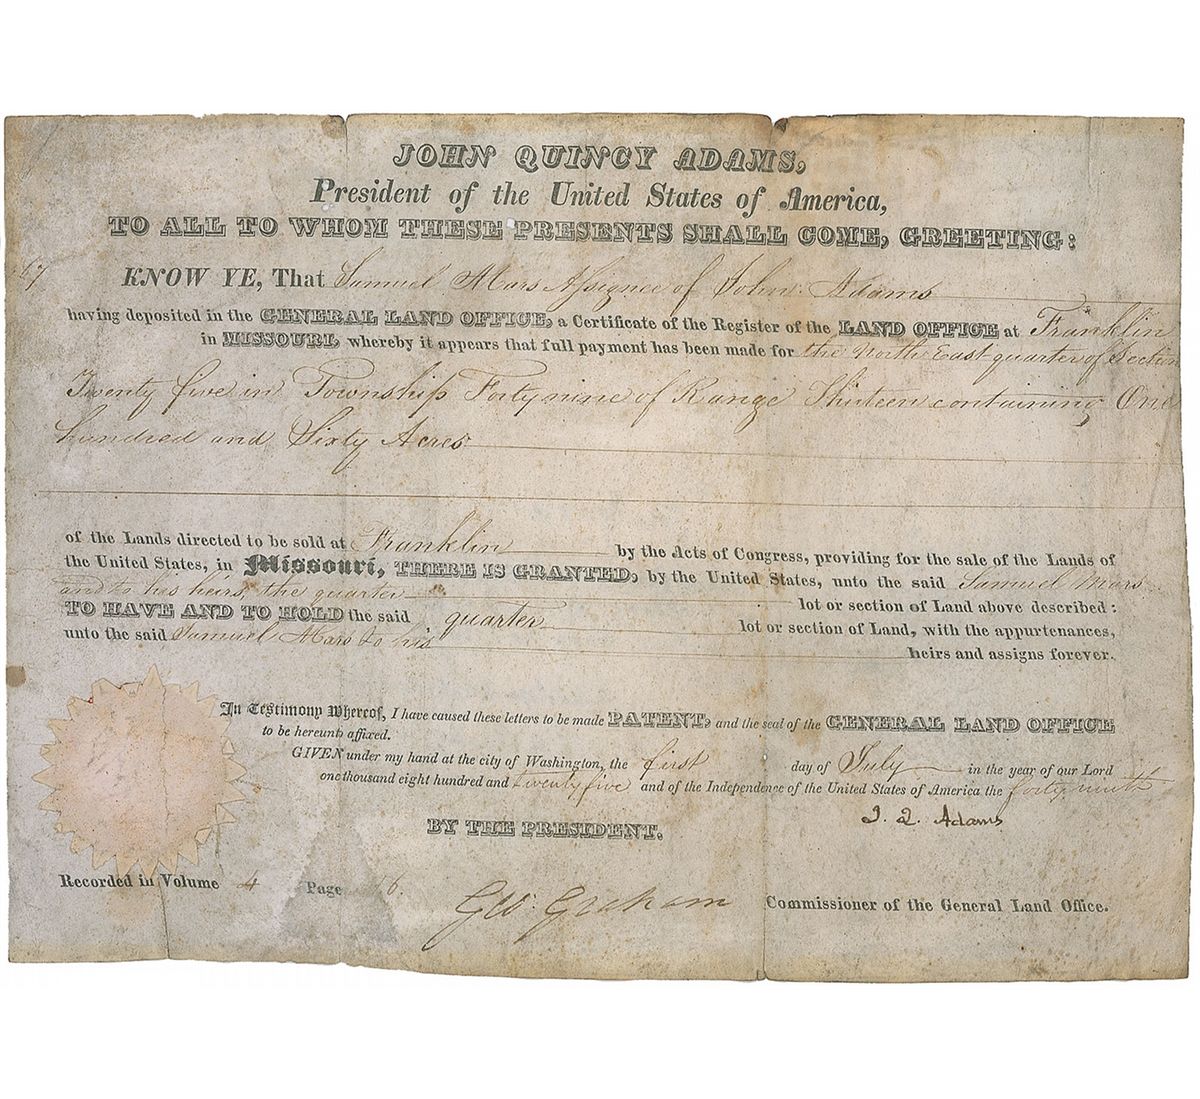 JOHN QUINCY ADAMS,
President of the United States of America,
TO ALL TO WHOM THESE PRESENTS SHALL COME, GREETING:
KNOW YE, That Samuel Mars Assignee of John Adams
having deposited in the GENERAL LAND OFFICE, a Certificate of the Register of the LAND OFFICE at Franklin
in MISSOURI, whereby it appears that full payment has been made for the North East quarter of Section
Twenty five in Township Forty nine of Range Thirteen containing One
hundred and Sixty Acres
of the Lands directed to be sold at Franklin by the Acts of Congress, providing for the sale of the Lands of
the United States, in Missouri, THERE IS GRANTED, by the United States, unto the said Samuel Mars
and to his heirs, the quarter lot or section of Land above described:
TO HAVE AND TO HOLD the said quarter lot or section of Land, with the appurtenances,
unto the said Samuel Mars to his heirs and assigns forever.
In Testimony Whereof, I have caused these letters to be made PATENT, and the seal of the GENERAL LAND OFFICE
to be hereunto affixed.
GIVEN under my hand at the city of Washington, the first day of July in the year of our Lord
one thousand eight hundred and twenty five and of the Independence of the United States of America the forty ninth
J. Q. Adams
BY THE PRESIDENT,
Recorded in Volume 4 Page
Geo: Graham Commissioner of the General Land Office.